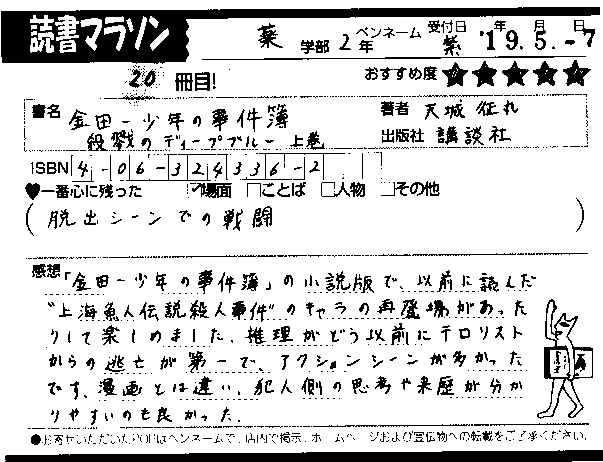 読書マラソン
薬 学部 2 年 ペンネーム 紫 受付日 '19.5.-7 年 月 日
20 冊目! おすすめ度 ★★★★★
書名 金田一少年の事件簿 著者 天城征丸
殺戮のディープブルー 上巻 出版社 講談社
ISBN 4-06-324336-2
♥一番心に残った ☑場面 □ことば □人物 □その他
( 脱出シーンでの戦闘 )
感想 「金田一少年の事件簿」の小説版で、以前に読んだ
"上海魚人伝説殺人事件"のキャラの再登場があった
りして楽しめました。推理がどう以前にテロリスト
からの逃亡が第一で、アクションシーンが多かった
です。漫画とは違い、犯人側の思考や来歴が分か
りやすいのも良かった。
●お寄せいただいたPOPはペンネームで、店内で掲示、ホームページおよび宣伝物への転載をご了承ください。